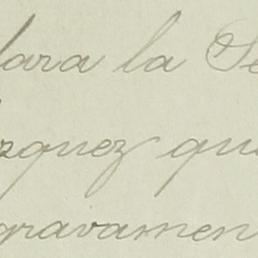 lara la Se
zquez que
gravamen